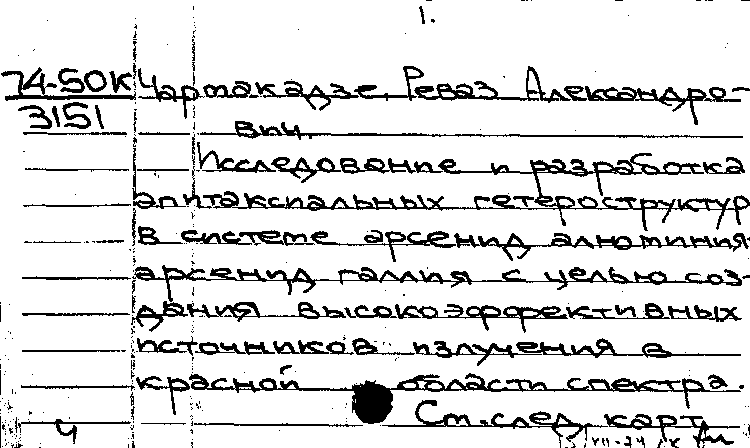 1.
74-50К Чартакадзе, Реваз Александро-
3151 вич.
Исследование и разработка
эпитаксиальных гетероструктур
в системе арсенид алюминия
арсенид галлия с целью соз-
дания высокоэффективных
источников излучения в
красной области спектра.
См. след. карт.
4